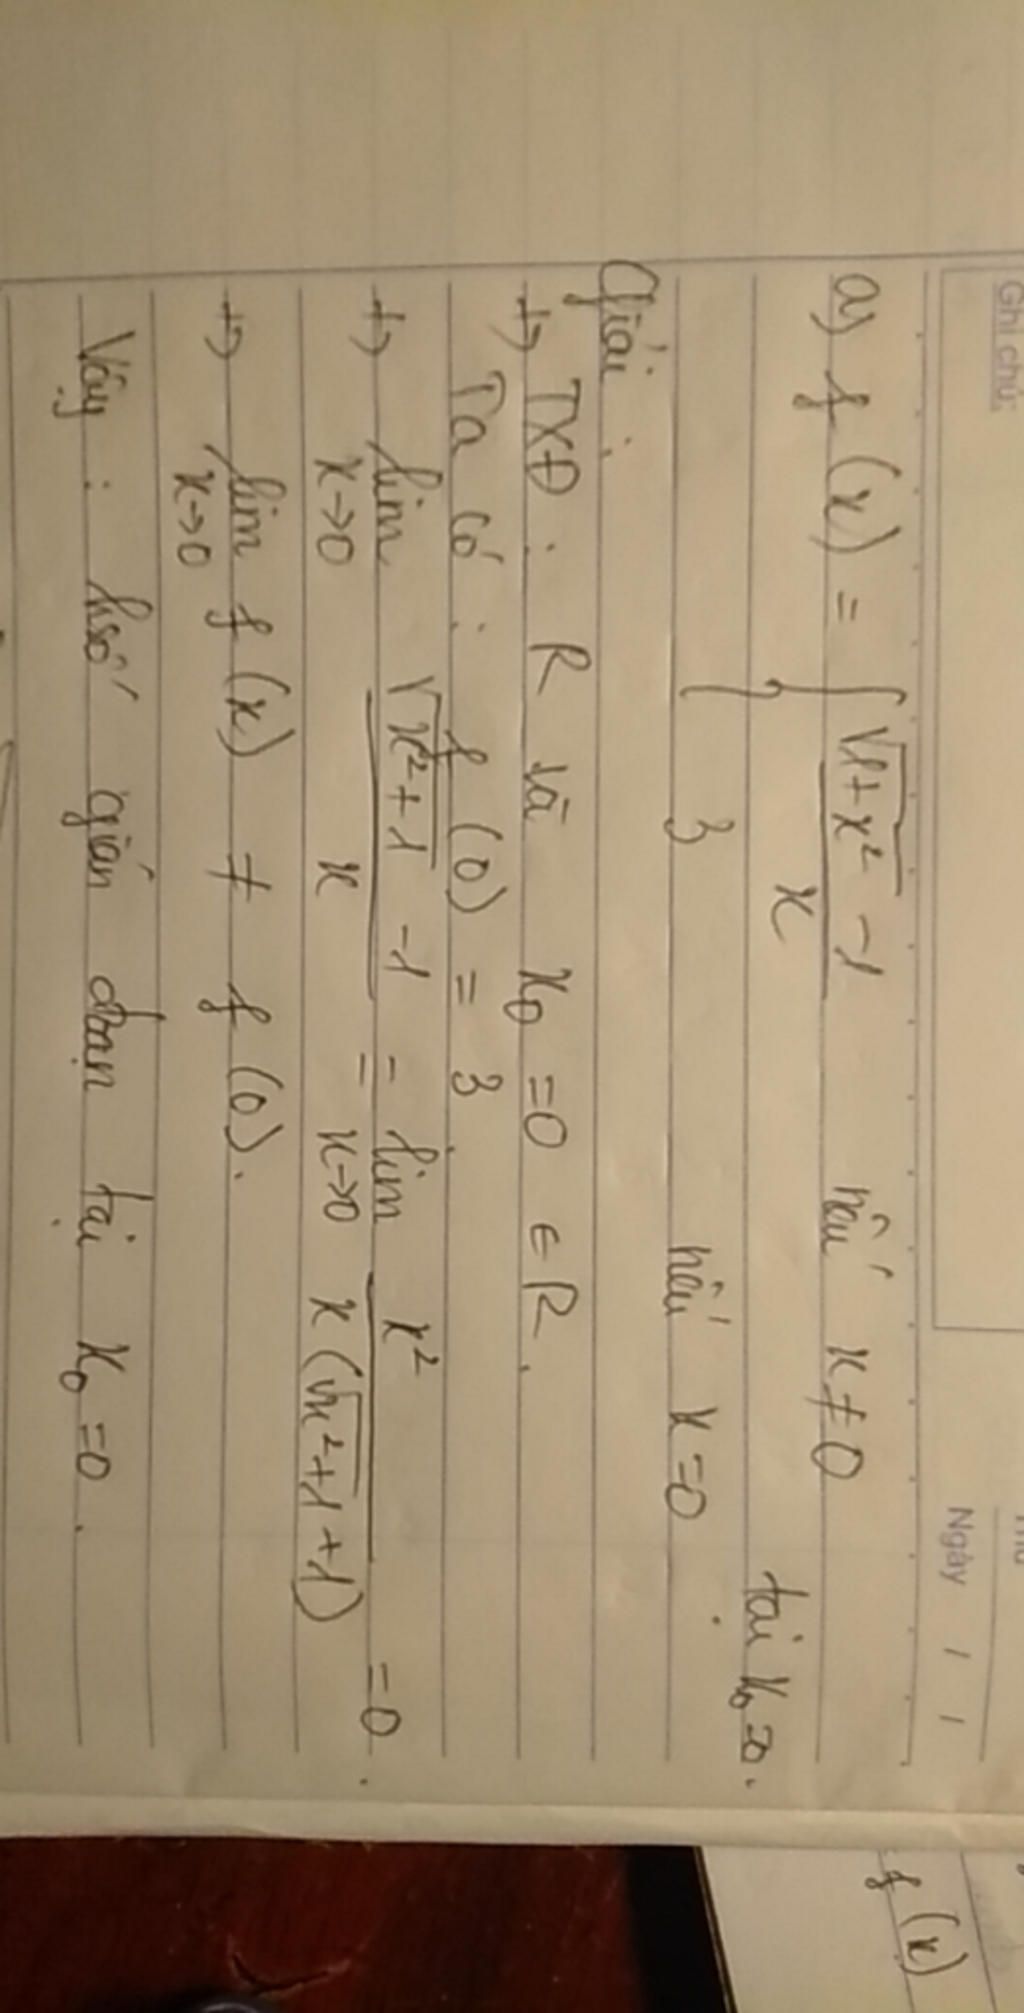 Ghi chú:
Ngày / /
a) f(x) = { (√(1+x²) -1)/x nếu x≠0
3 nếu x=0
tại x₀=0.
Giải:
+) TXĐ: R và x₀=0 ∈ R.
Ta có: f(0) = 3
+) lim x→0 (√(x²+1) -1)/x = lim x→0 x²/(x(√(x²+1)+1)) =0.
+) lim x→0 f(x) ≠ f(0).
Vậy: hsố gián đoạn tại x₀=0.
f(x)